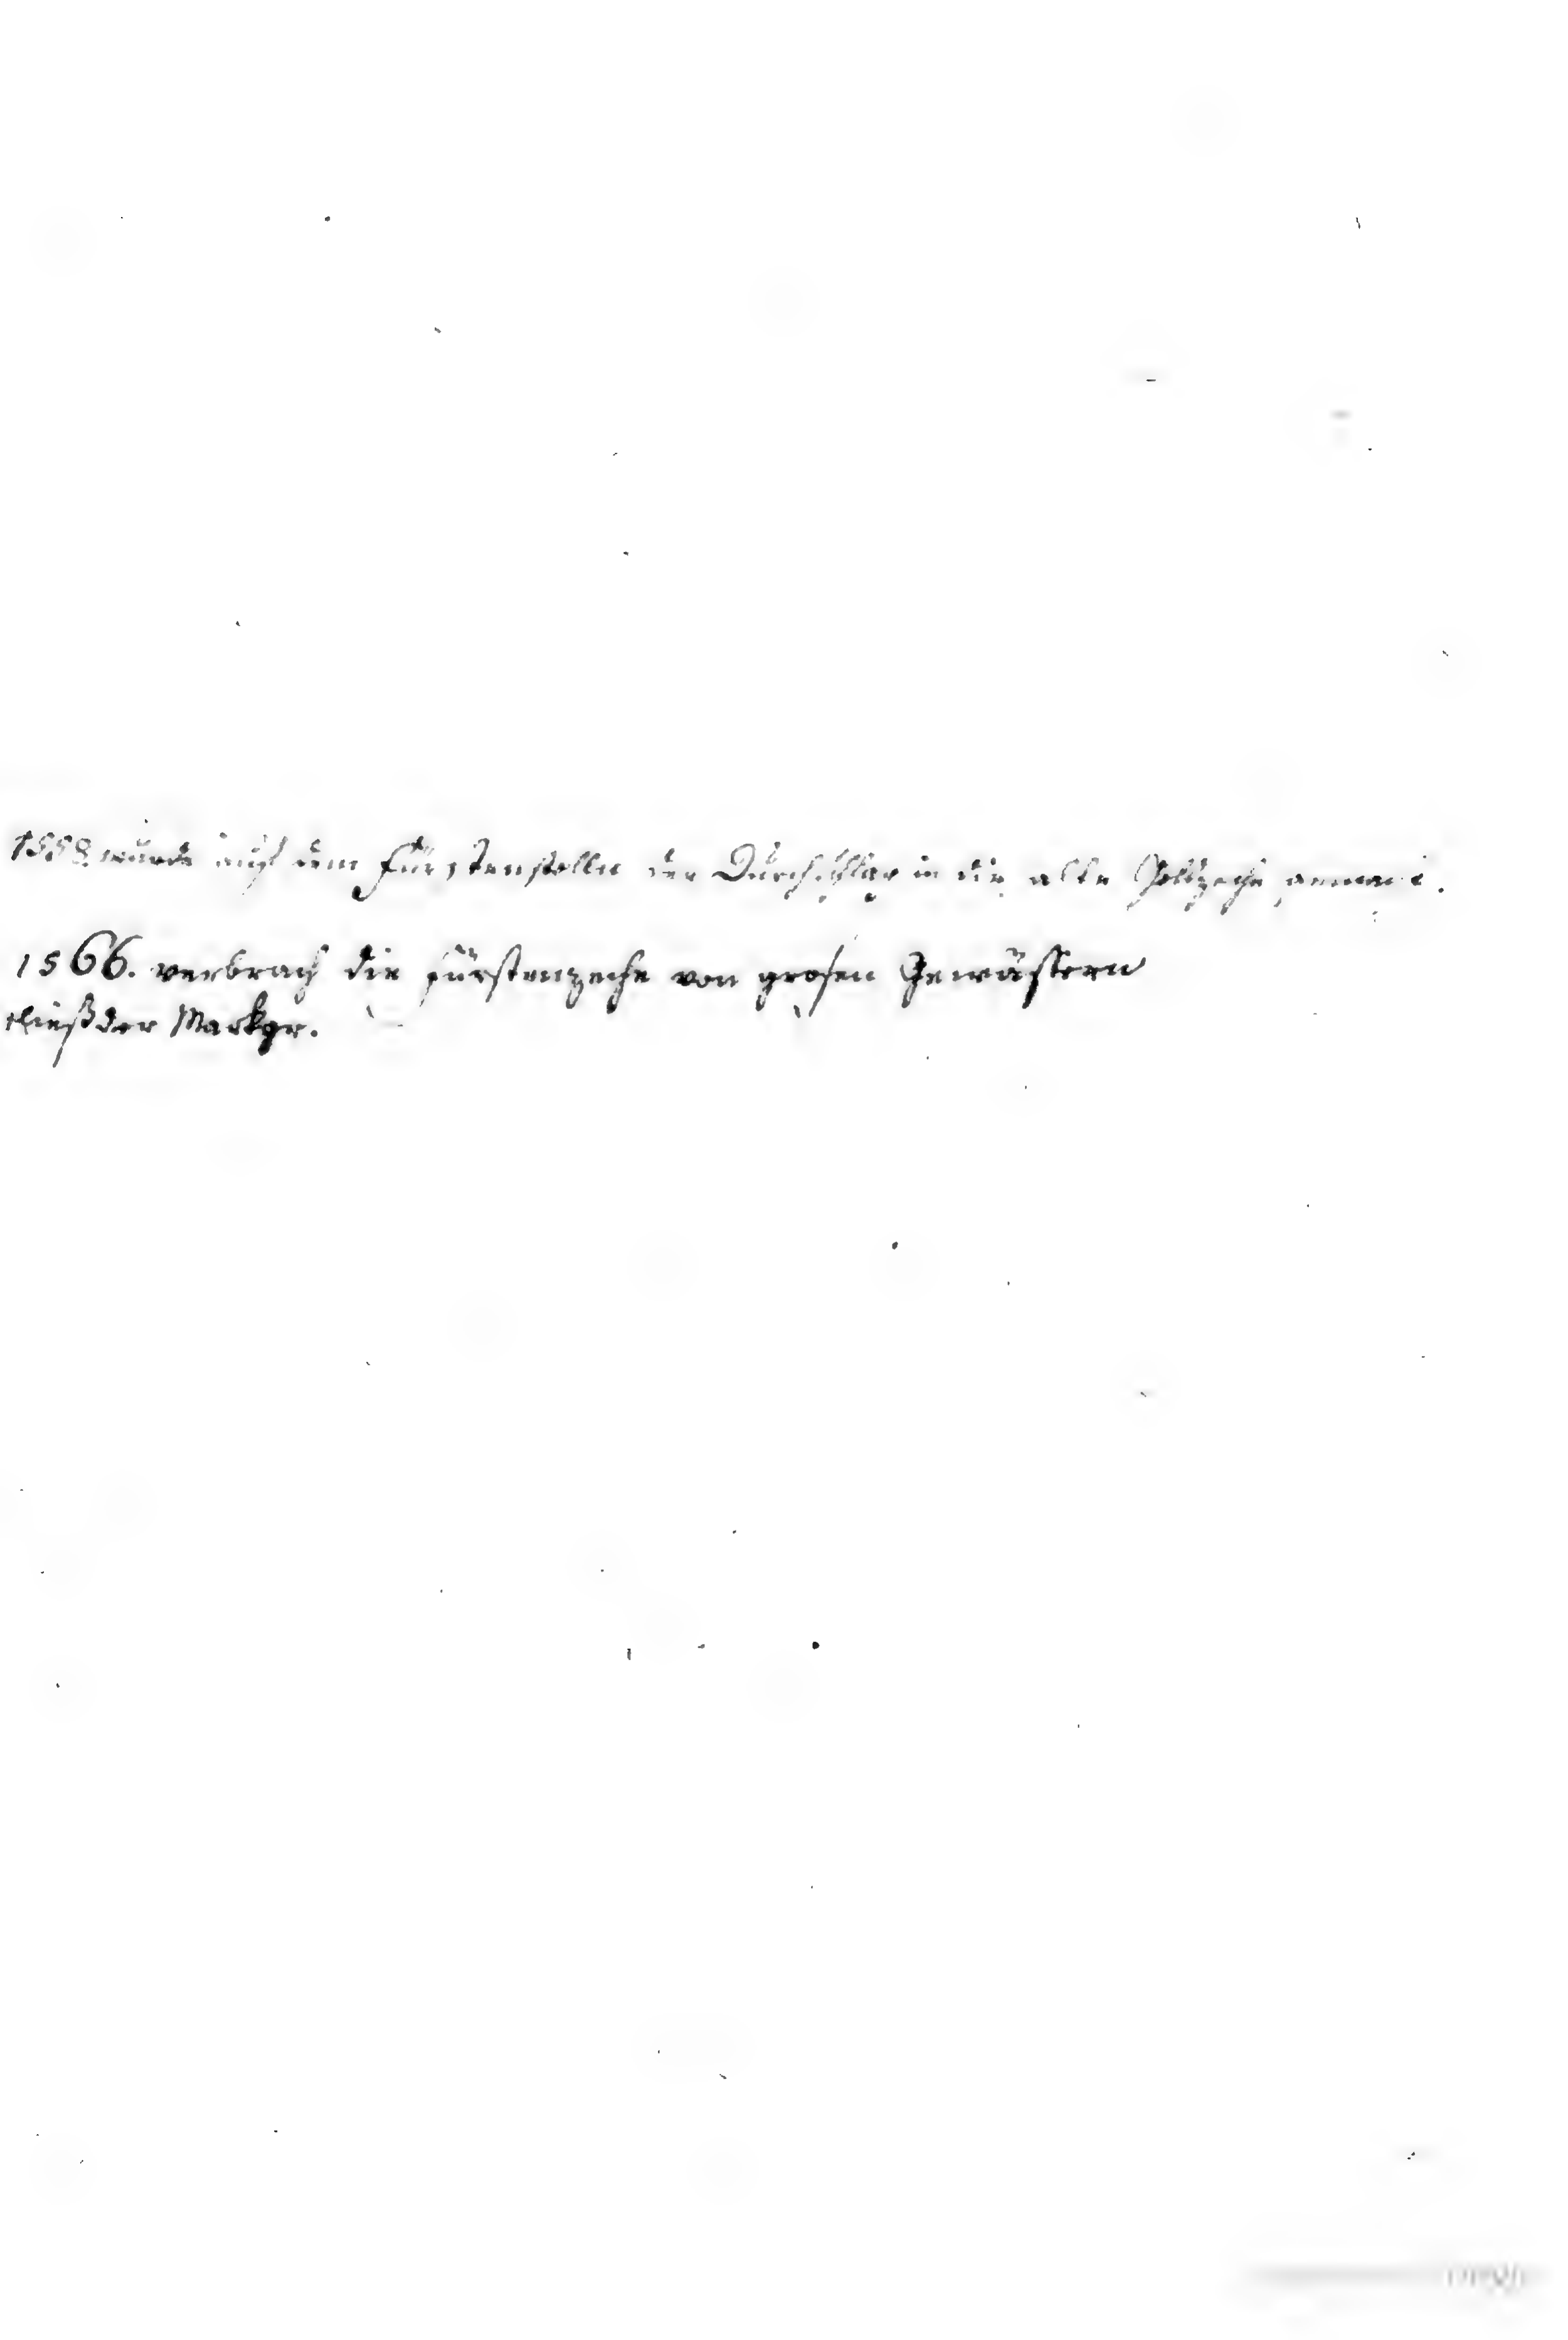 1558. wurde auf dem Fürstenstolln der Durchschlag in die alte Goldzeche gemacht.
1566. verbrach die Fürstenzeche von grosen Gewässern
ließ der Markgr.